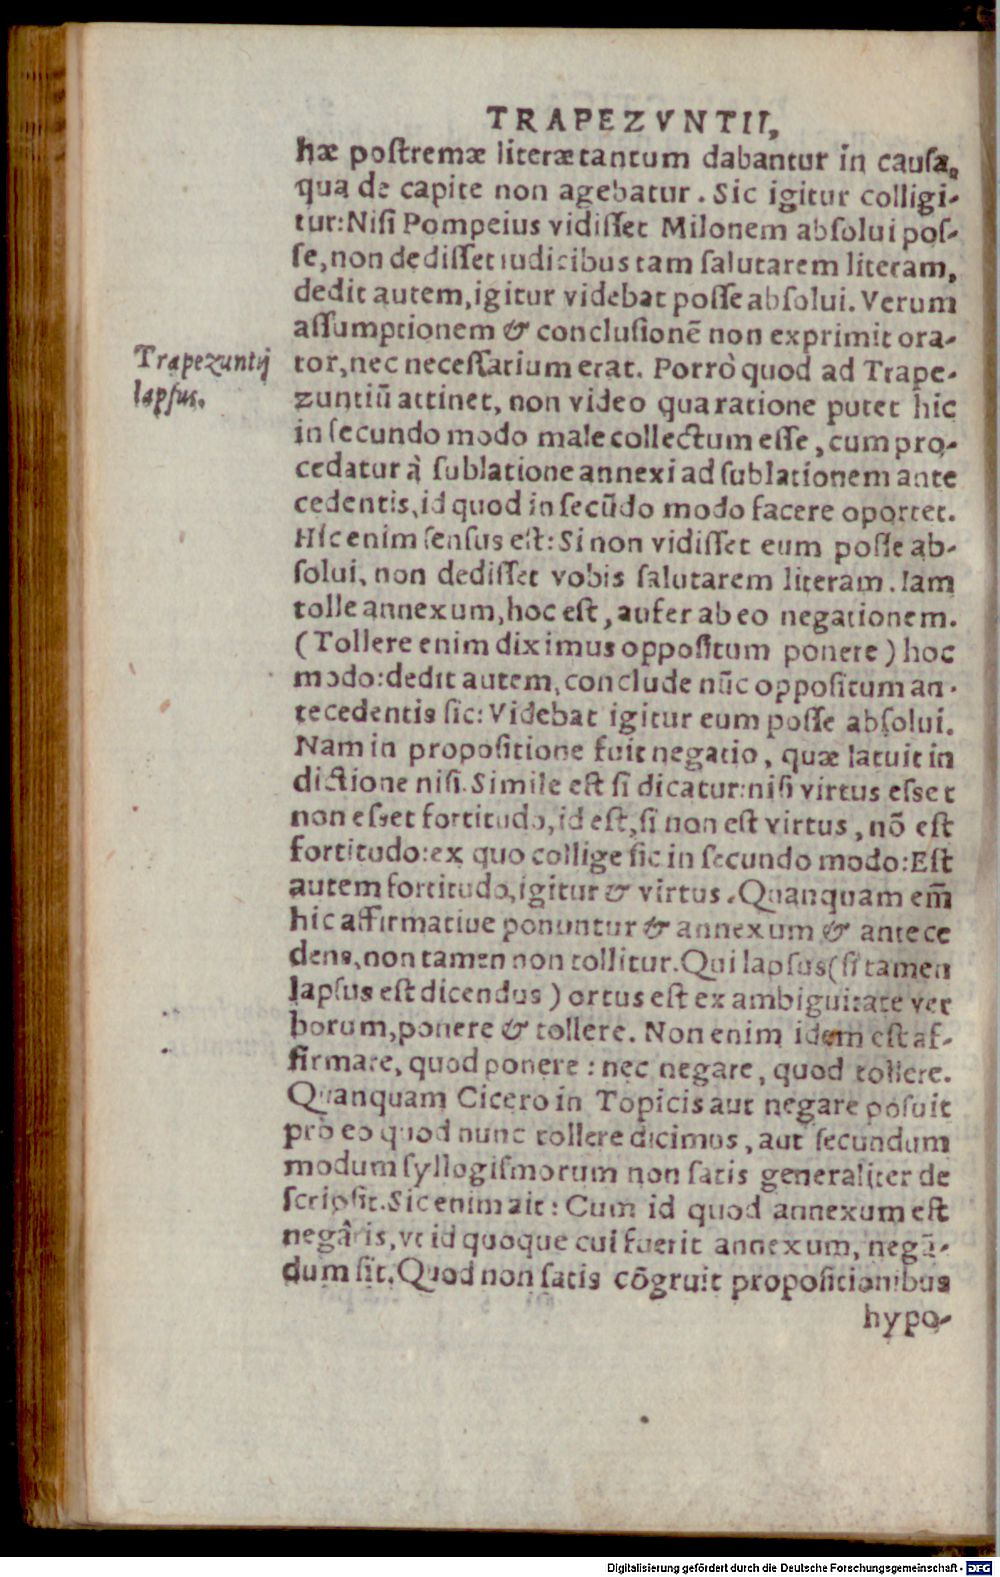 TRAPEZVNTII,
hæ poſtremæ literætantum dabantur in cauſa,
qua de capite non agebatur. Sic igitur colligi-
tur: Niſi Pompeius vidiſſet Milonem abſolui poſ-
ſe, non dediſſet iudicibus tam ſalutarem literam,
dedit autem, igitur videbat poſſe abſolui. Verum
aſſumptionem & concluſionē non exprimit ora-
Trapezuntij
lapſus.
tor, nec neceſſarium erat. Porrò quod ad Trape-
zuntiū attinet, non video qua ratione putet hic
in ſecundo modo male collectum eſſe, cum pro-
cedatur à ſublatione annexi ad ſublationem ante
cedentis, id quod in ſecūdo modo facere oportet.
Hic enim ſenſus eſt: Si non vidiſſet eum poſſe ab-
ſolui, non dediſſet vobis ſalutarem literam. Iam
tolle annexum, hoc eſt, aufer ab eo negationem.
(Tollere enim diximus oppoſitum ponere) hoc
modo: dedit autem, conclude nūc oppoſitum an-
tecedentis ſic: Videbat igitur eum poſſe abſolui.
Nam in propoſitione fuit negatio, quæ latuit in
dictione niſi. Simile eſt ſi dicatur: niſi virtus eſset
non eſset fortitudo, id eſt, ſi non eſt virtus, nō eſt
fortitudo: ex quo collige ſic in ſecundo modo: Eſt
autem fortitudo, igitur & virtus. Quanquam em̄
hic affirmatiue ponuntur & annexum & antece
dens, non tamen non tollitur. Qui lapſus (ſi tamen
lapſus eſt dicendus) ortus eſt ex ambiguitate ver
borum, ponere & tollere. Non enim idem eſt af-
firmare, quod ponere: nec negare, quod tollere.
Quanquam Cicero in Topicis aut negare poſuit
pro eo quod nunc tollere dicimus, aut ſecundum
modum ſyllogiſmorum non ſatis generaliter de
ſcripſit. Sic enim ait: Cum id quod annexum eſt
negâris, vt id quoque cui fuerit annexum, negā-
dum ſit. Quod non ſatis cōgruit propoſitionibus
hypo-
Digitalisierung gefördert durch die Deutsche Forschungsgemeinschaft - DFG